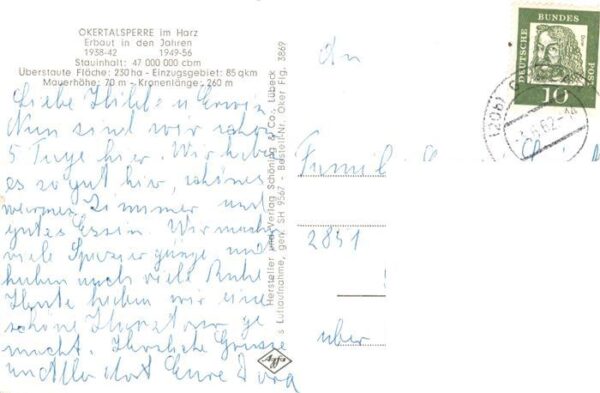 OKERTALSPERRE im Harz
Erbaut in den Jahren
1938-42 1949-56
Stauinhalt: 47 000 000 cbm
Überstaute Fläche: 230 ha - Einzugsgebiet: 85 qkm
Mauerhöhe: 70 m - Kronenlänge: 260 m
Liebe u Erwin
Nun sind wir schon
5 Tage hier. Wir haben
es so gut hier, schönes
warmes Zimmer und
gutes Essen. Wir machen
viele Spaziergänge und
haben auch viele Ruhe
Heute haben wir eine
schöne Harztour ge
macht. Herzliche Grüsse
Eure Dora
Hersteller und Verlag Schöning & Co., Lübeck
s Luftaufnahme, gen. SH 9567 - Bestell-Nr. Oker Flg. 3869
An
Famili
2841
über
DEUTSCHE
BUNDES
POST
10
(20b)
.6.62-14